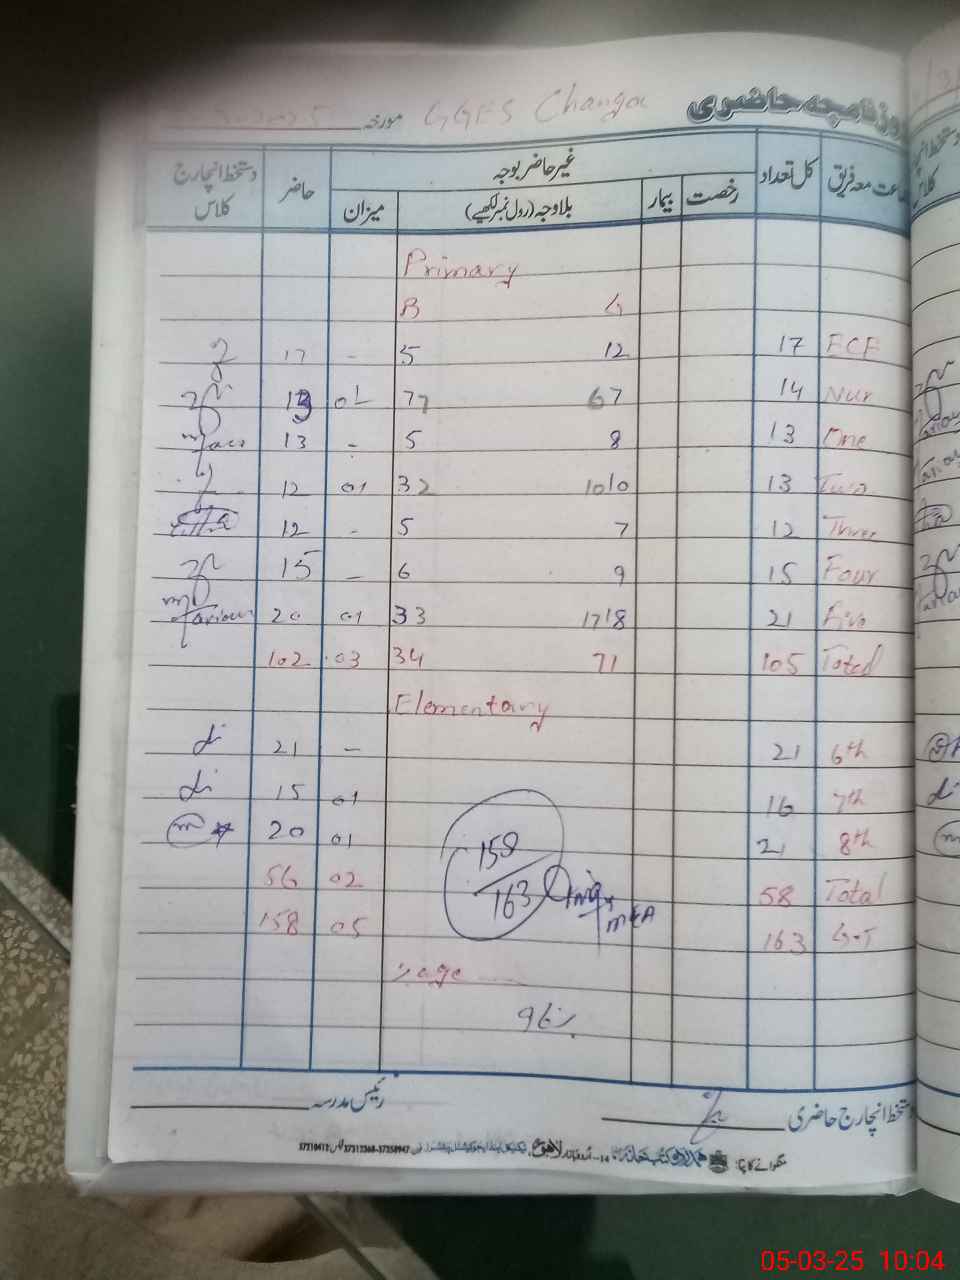 روزنامچہ حاضری GGES Changa مورخہ
جماعت معہ فریق کل تعداد غیر حاضر بوجہ حاضر دستخط انچارج کلاس
رخصت بیمار بلاوجہ (رول نمبر لکھیے) میزان
Primary
B G
17 - 5 12 17 ECE
13 01 77 67 14 Nur
13 - 5 8 13 One
12 01 32 1010 13 Two
12 - 5 7 12 Three
15 - 6 9 15 Four
20 01 33 1718 21 Five
102 03 34 71 105 Total
Elementary
21 - 21 6th
15 01 16 7th
20 01 21 8th
56 02 58 Total
158 05 163 G.T
158/163
MEA
%age
96%
دستخط انچارج حاضری رئیس مدرسہ
منگوانے کا پتہ: لاہور
05-03-25 10:04